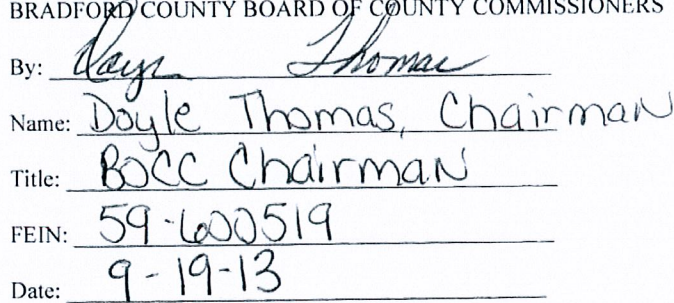 BRADFORD COUNTY BOARD OF COUNTY COMMISSIONERS
By: Doyle Thomas
Name: Doyle Thomas, Chairman
Title: BOCC Chairman
FEIN: 59-600519
Date: 9-19-13